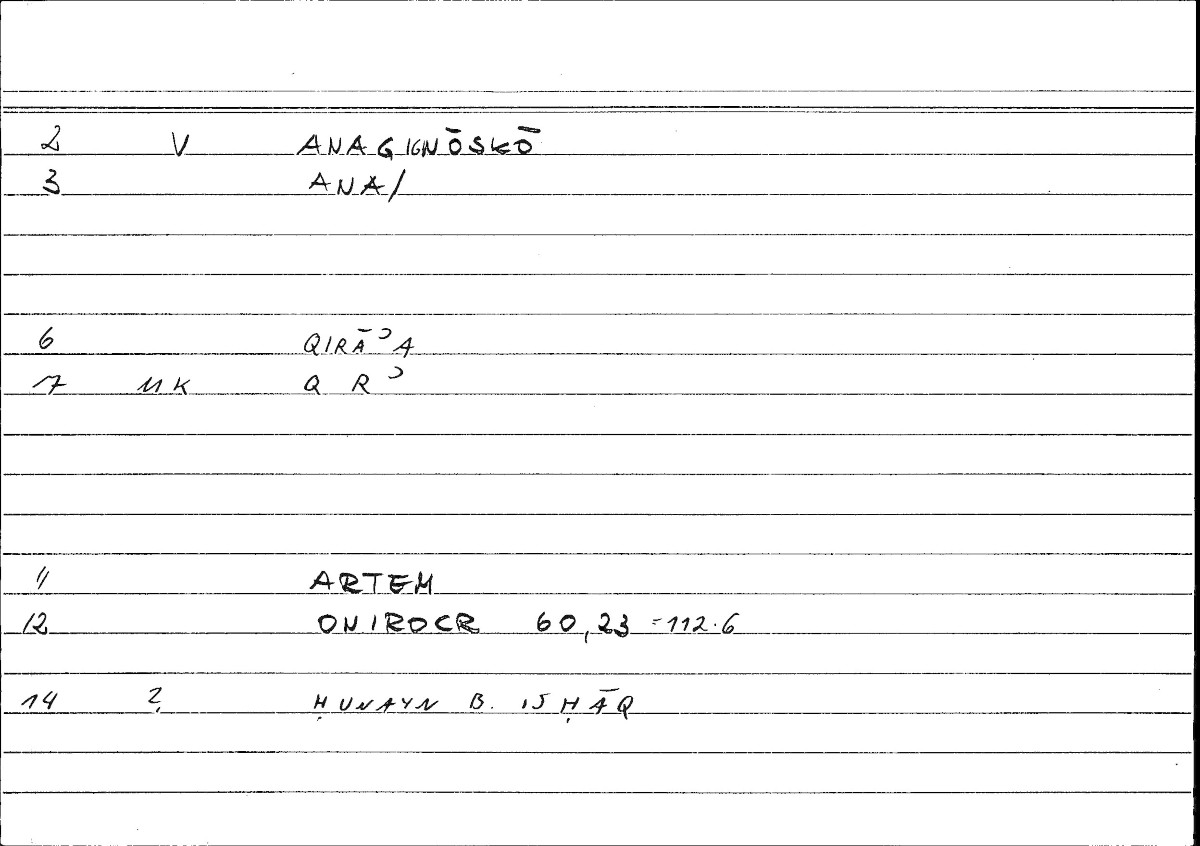 2 V ANAGIGNŌSKŌ
3 ANA/
6 QIRĀʾA
7 MK Q R ʾ
11 ARTEM
12 ONIROCR 60,23 =112.6
14 ? ḤUNAYN B. ISḤĀQ